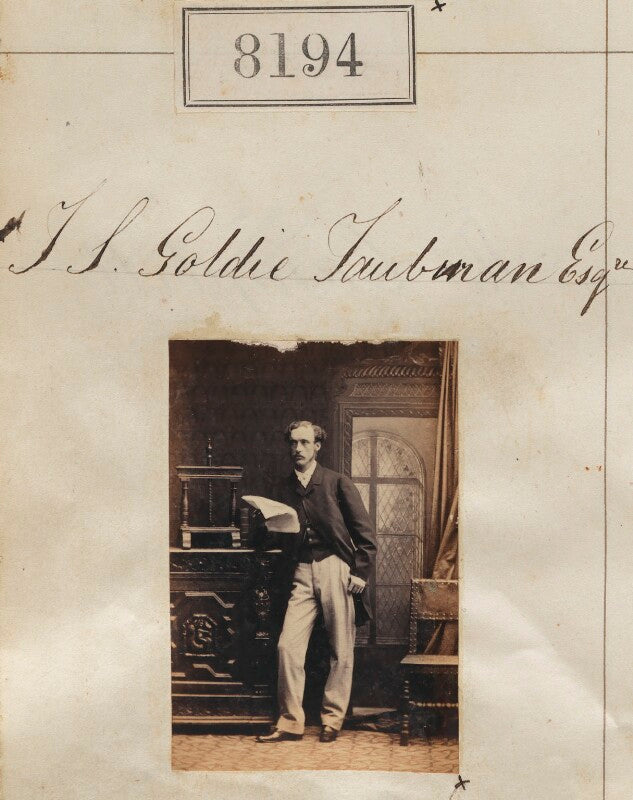 8194
J S. Goldie Taubman Esqre